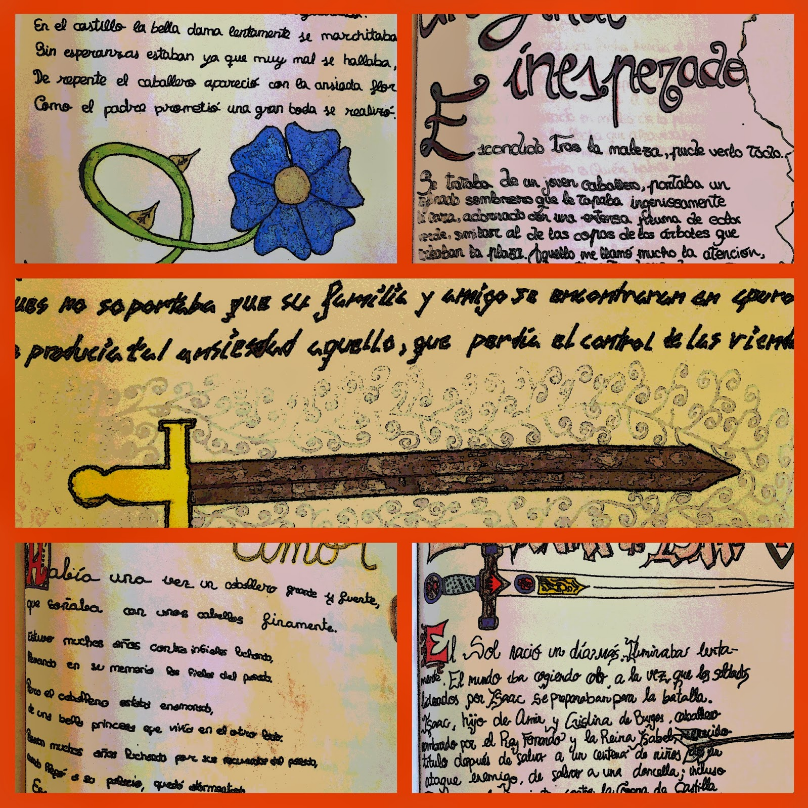 En el castillo la bella dama lentamente se marchitaba
Sin esperanzas estaban ya que muy mal se hallaba,
De repente el caballero apareció con la ansiada flor
Como el padre prometió una gran boda se realizó.
inesperado
Escondido tras la maleza, pude verlo todo.
Se trataba de un joven caballero, portaba un
sombrero que le tapaba ingeniosamente
la cara, adornado con una extensa pluma de color
verde, similar al de las copas de los árboles que
la plaza. Aquello me llamó mucho la atención,
no soportaba que su familia y amigo se encontraran en apuro
producía tal ansiedad aquello, que perdía el control de las
amor
Había una vez un caballero grande y fuerte,
que soñaba con unos cabellos finamente.
Estuvo muchos años contra infieles luchando,
llevando en su memoria las fieles del
Pero el caballero estaba enamorado,
de una bella princesa que vivía en el otro lado.
muchos años luchando por sus
a su palacio, quedó
El Sol nació un día más. Iluminaba lenta-
mente. El mundo iba cogiendo color a la vez que los soldados
liderados por Isaac se preparaban para la batalla.
Isaac, hijo de Amir y Cristina de Burgos, caballero
nombrado por el Rey Fernando y la Reina Isabel,
título después de salvar a un centenar de niños
ataque enemigo, de salvar a una doncella; incluso
contra la Corona de Castilla